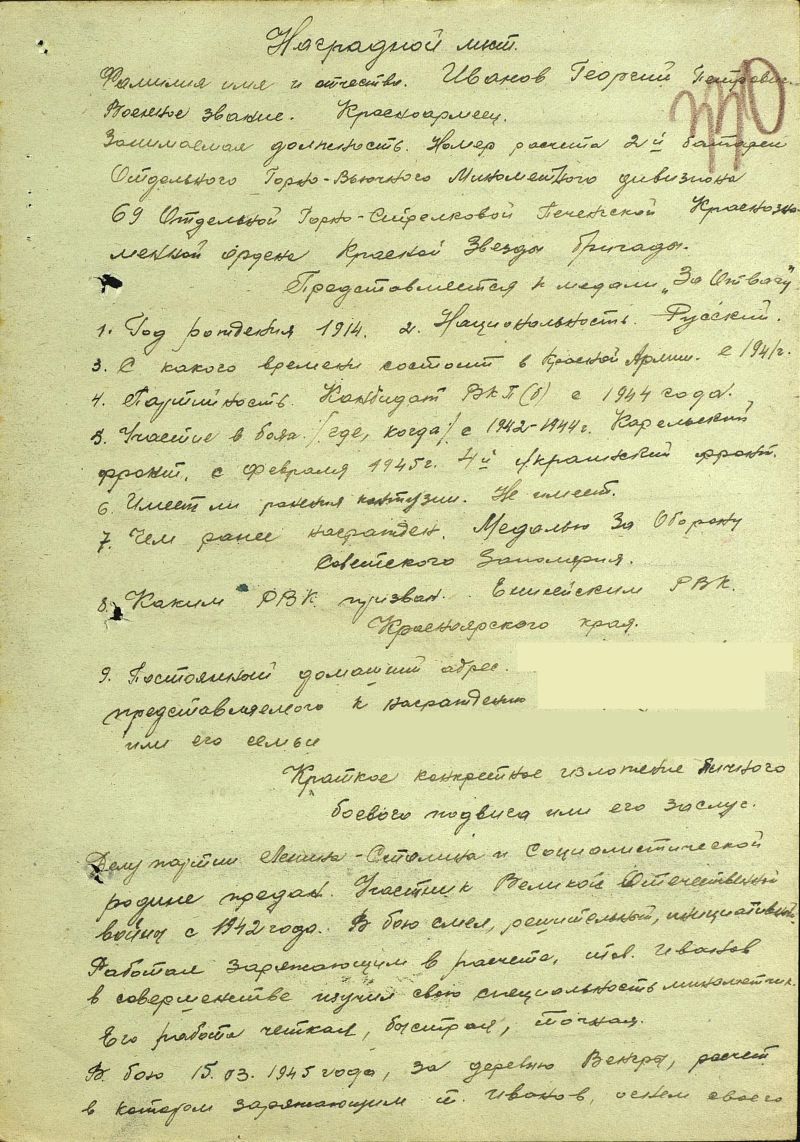 Наградной лист.
Фамилия имя и отчество. Иванов Георгий Петрович
770
Военное звание. Красноармеец.
Занимаемая должность. Номер расчета 2й батареи
Отдельного Горно-Вьючного Минометного дивизиона
69 Отдельной Горно-Стрелковой Печенгской Краснозна
менной ордена Красной Звезды бригады.
Представляется к медали „За Отвагу"
1. Год рождения 1914. 2. Национальность. Русский.
3. С какого времени состоит в Красной Армии. с 1941г.
4. Партийность. Кандидат ВКП(б) с 1944 года.
5. Участие в боях /где, когда/ с 1942-1944г. Карельский
фронт, с февраля 1945г. 4й Украинский фронт.
6. Имеет ли ранения контузии. Не имеет.
7. Чем ранее награжден. Медалью За Оборону
Советского Заполярия.
8. Каким РВК призван. Енисейским РВК.
Красноярского края.
9. Постоянный домашний адрес.
представляемого к награждению
или его семьи
Краткое конкретное изложение личного
боевого подвига или его заслуг.
Делу партии Ленина-Сталина и Социалистической
родине предан. Участник Великой Отечественной
войны с 1942 года. В бою смел, решительный, инициативный.
Работая заряжающим в расчете, тов. Иванов
в совершенстве изучил свою специальность минометчик.
Его работа четкая, быстрая, точная.
В бою 15.03.1945 года, за деревню Венгры, расчет
в котором заряжающим т. Иванов, огнем своего